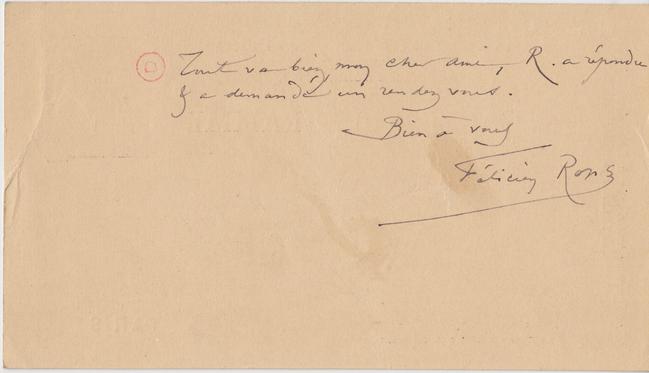 Tout va bien, mon cher ami, R. a répondu
& a demandé un rendez vous.
Bien à vous
Félicien Rops